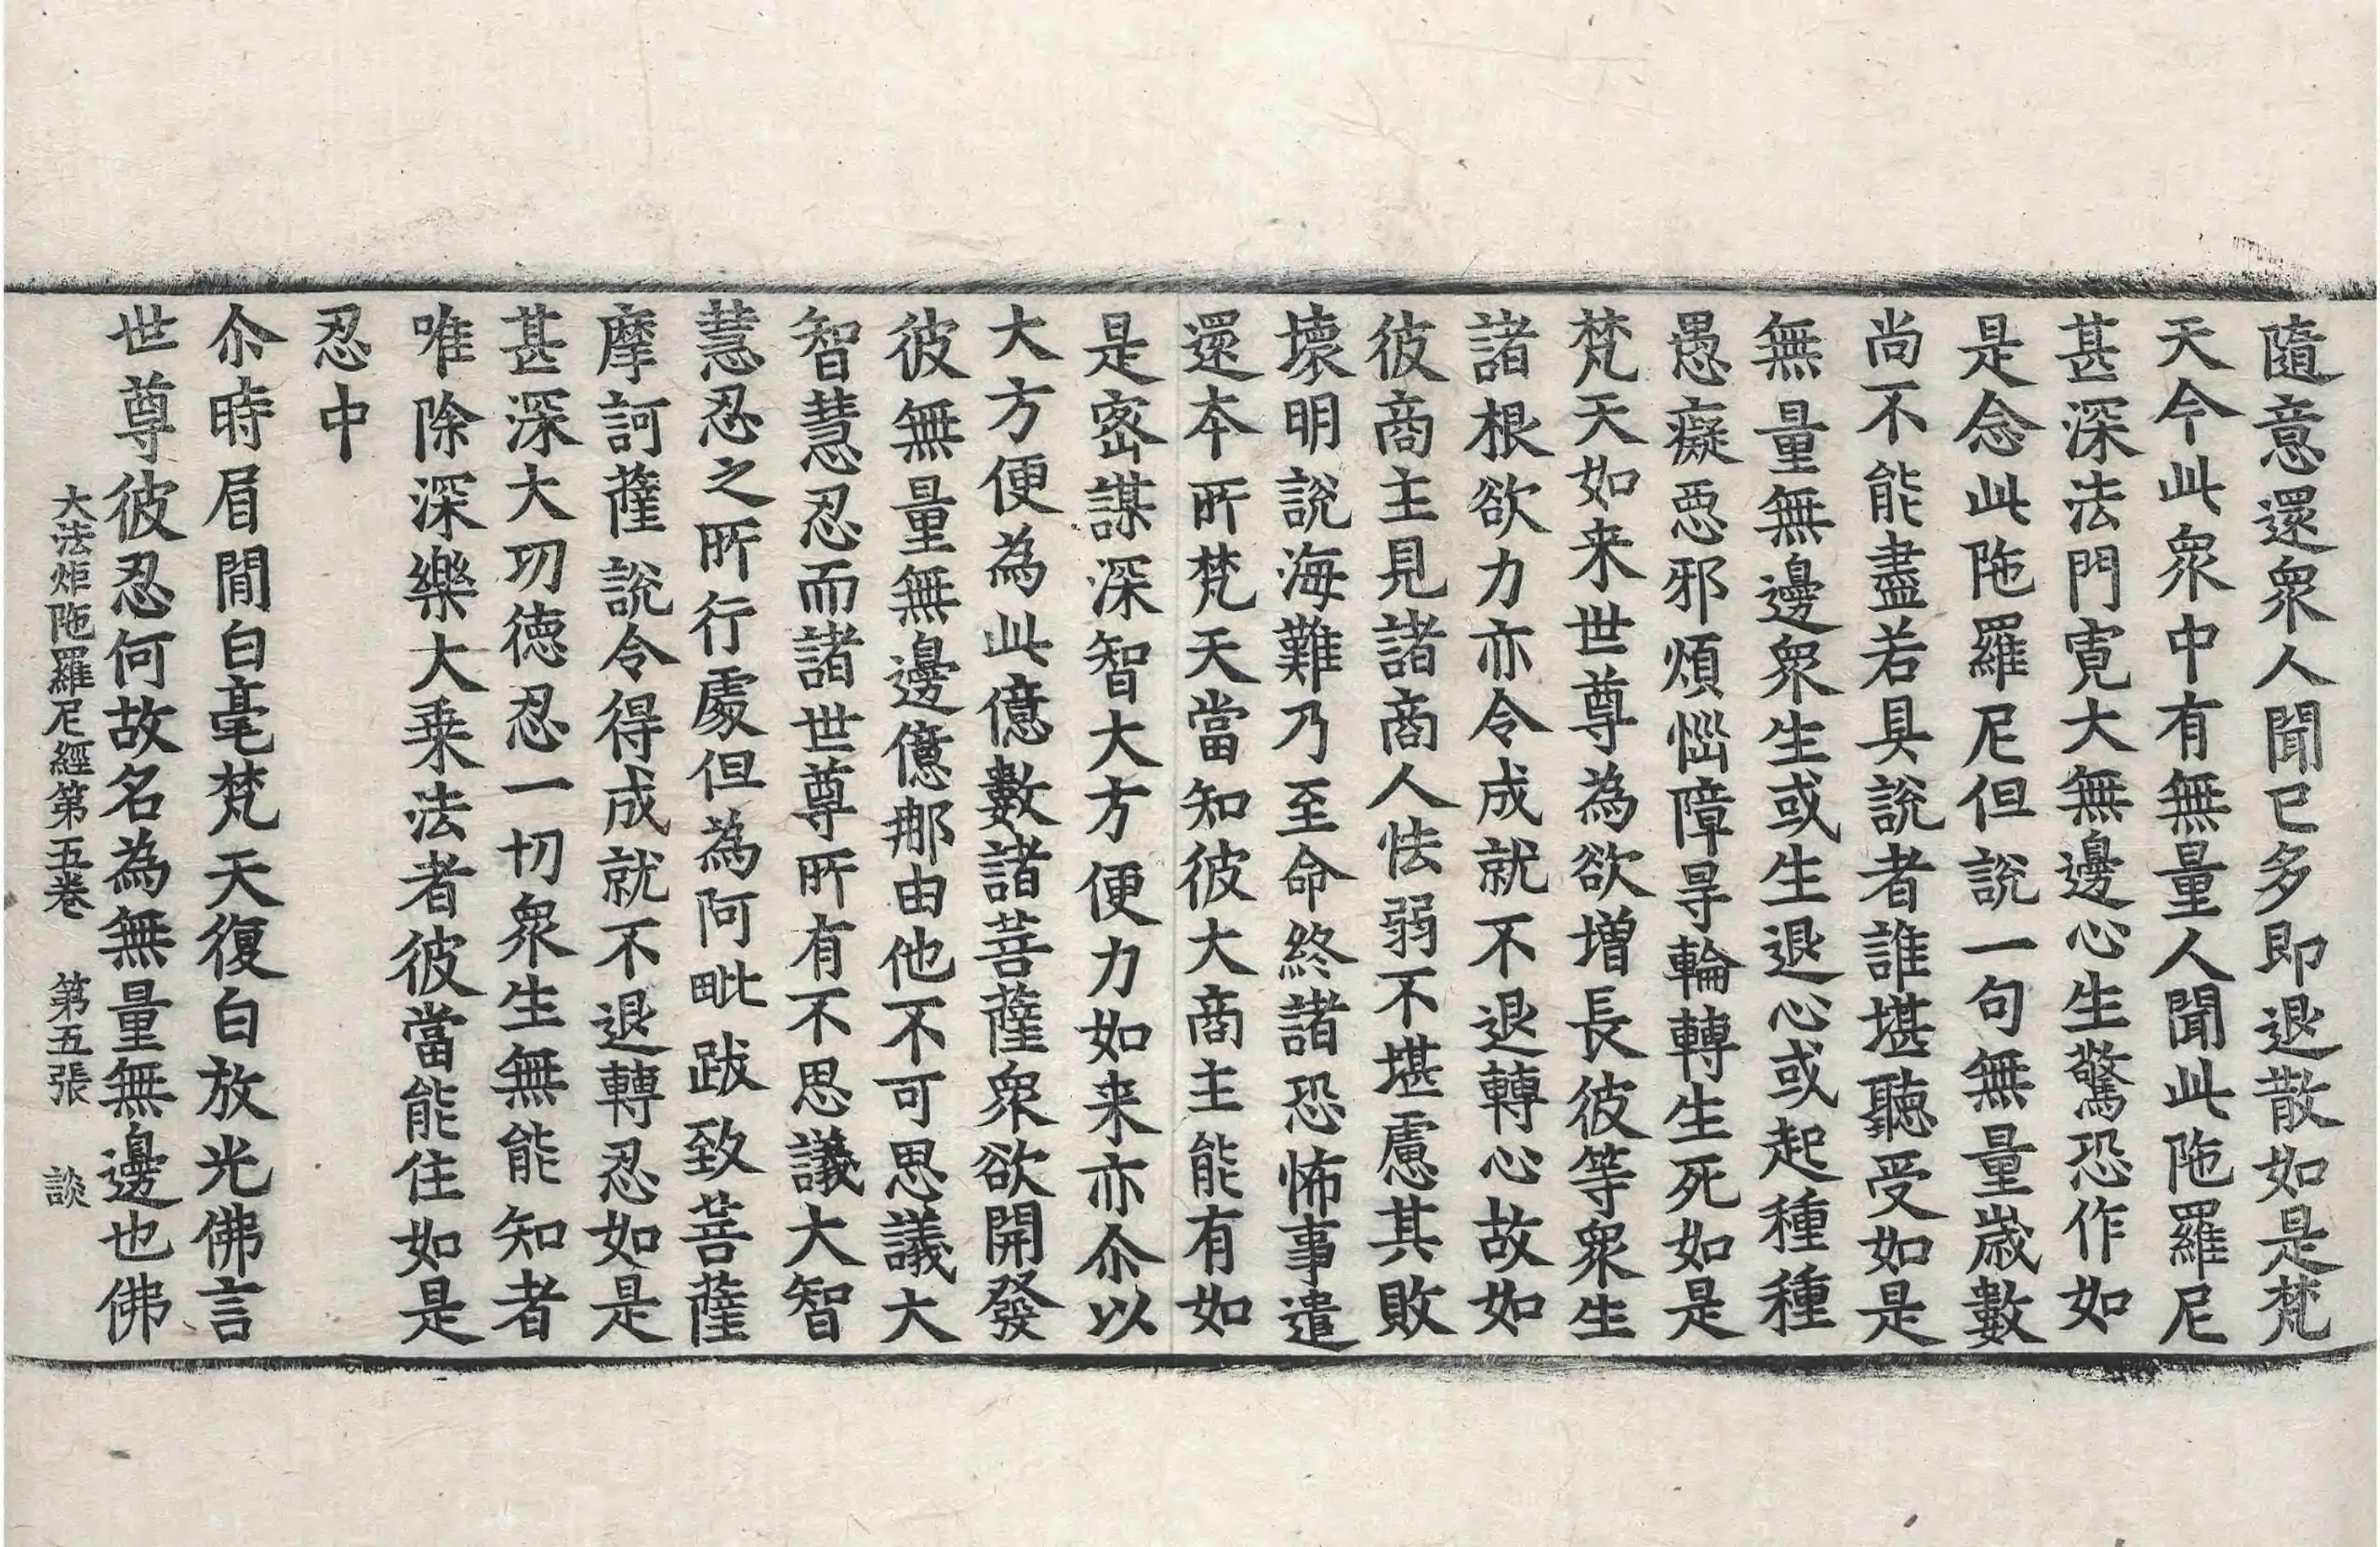 隨意還衆人聞已多即退散如是梵
天今此衆中有無量人聞此陁羅尼
甚深法門寬大無邊心生驚恐作如
是念此陁羅尼但說一句無量歲數
尚不能盡若具說者誰堪聽受如是
無量無邊衆生或生退心或起種種
愚癡惡邪煩惱障㝵輪轉生死如是
梵天如来世尊為欲增長彼等衆生
諸根欲力亦令成就不退轉心故如
彼商主見諸商人怯弱不堪慮其敗
壞明說海難乃至命終諸恐怖事遣
還本所梵天當知彼大商主能有如
是密謀深智大方便力如来亦尒以
大方便為此億數諸菩薩衆欲開發
彼無量無邊億那由他不可思議大
智慧忍而諸世尊所有不思議大智
慧忍之所行處但為阿毗跋致菩薩
摩訶薩說令得成就不退轉忍如是
甚深大功德忍一切衆生無能知者
唯除深樂大乗法者彼當能住如是
忍中
尒時眉間白毫梵天復白放光佛言
世尊彼忍何故名為無量無邊也佛
大法炬陁羅尼經第五卷 第五張 談